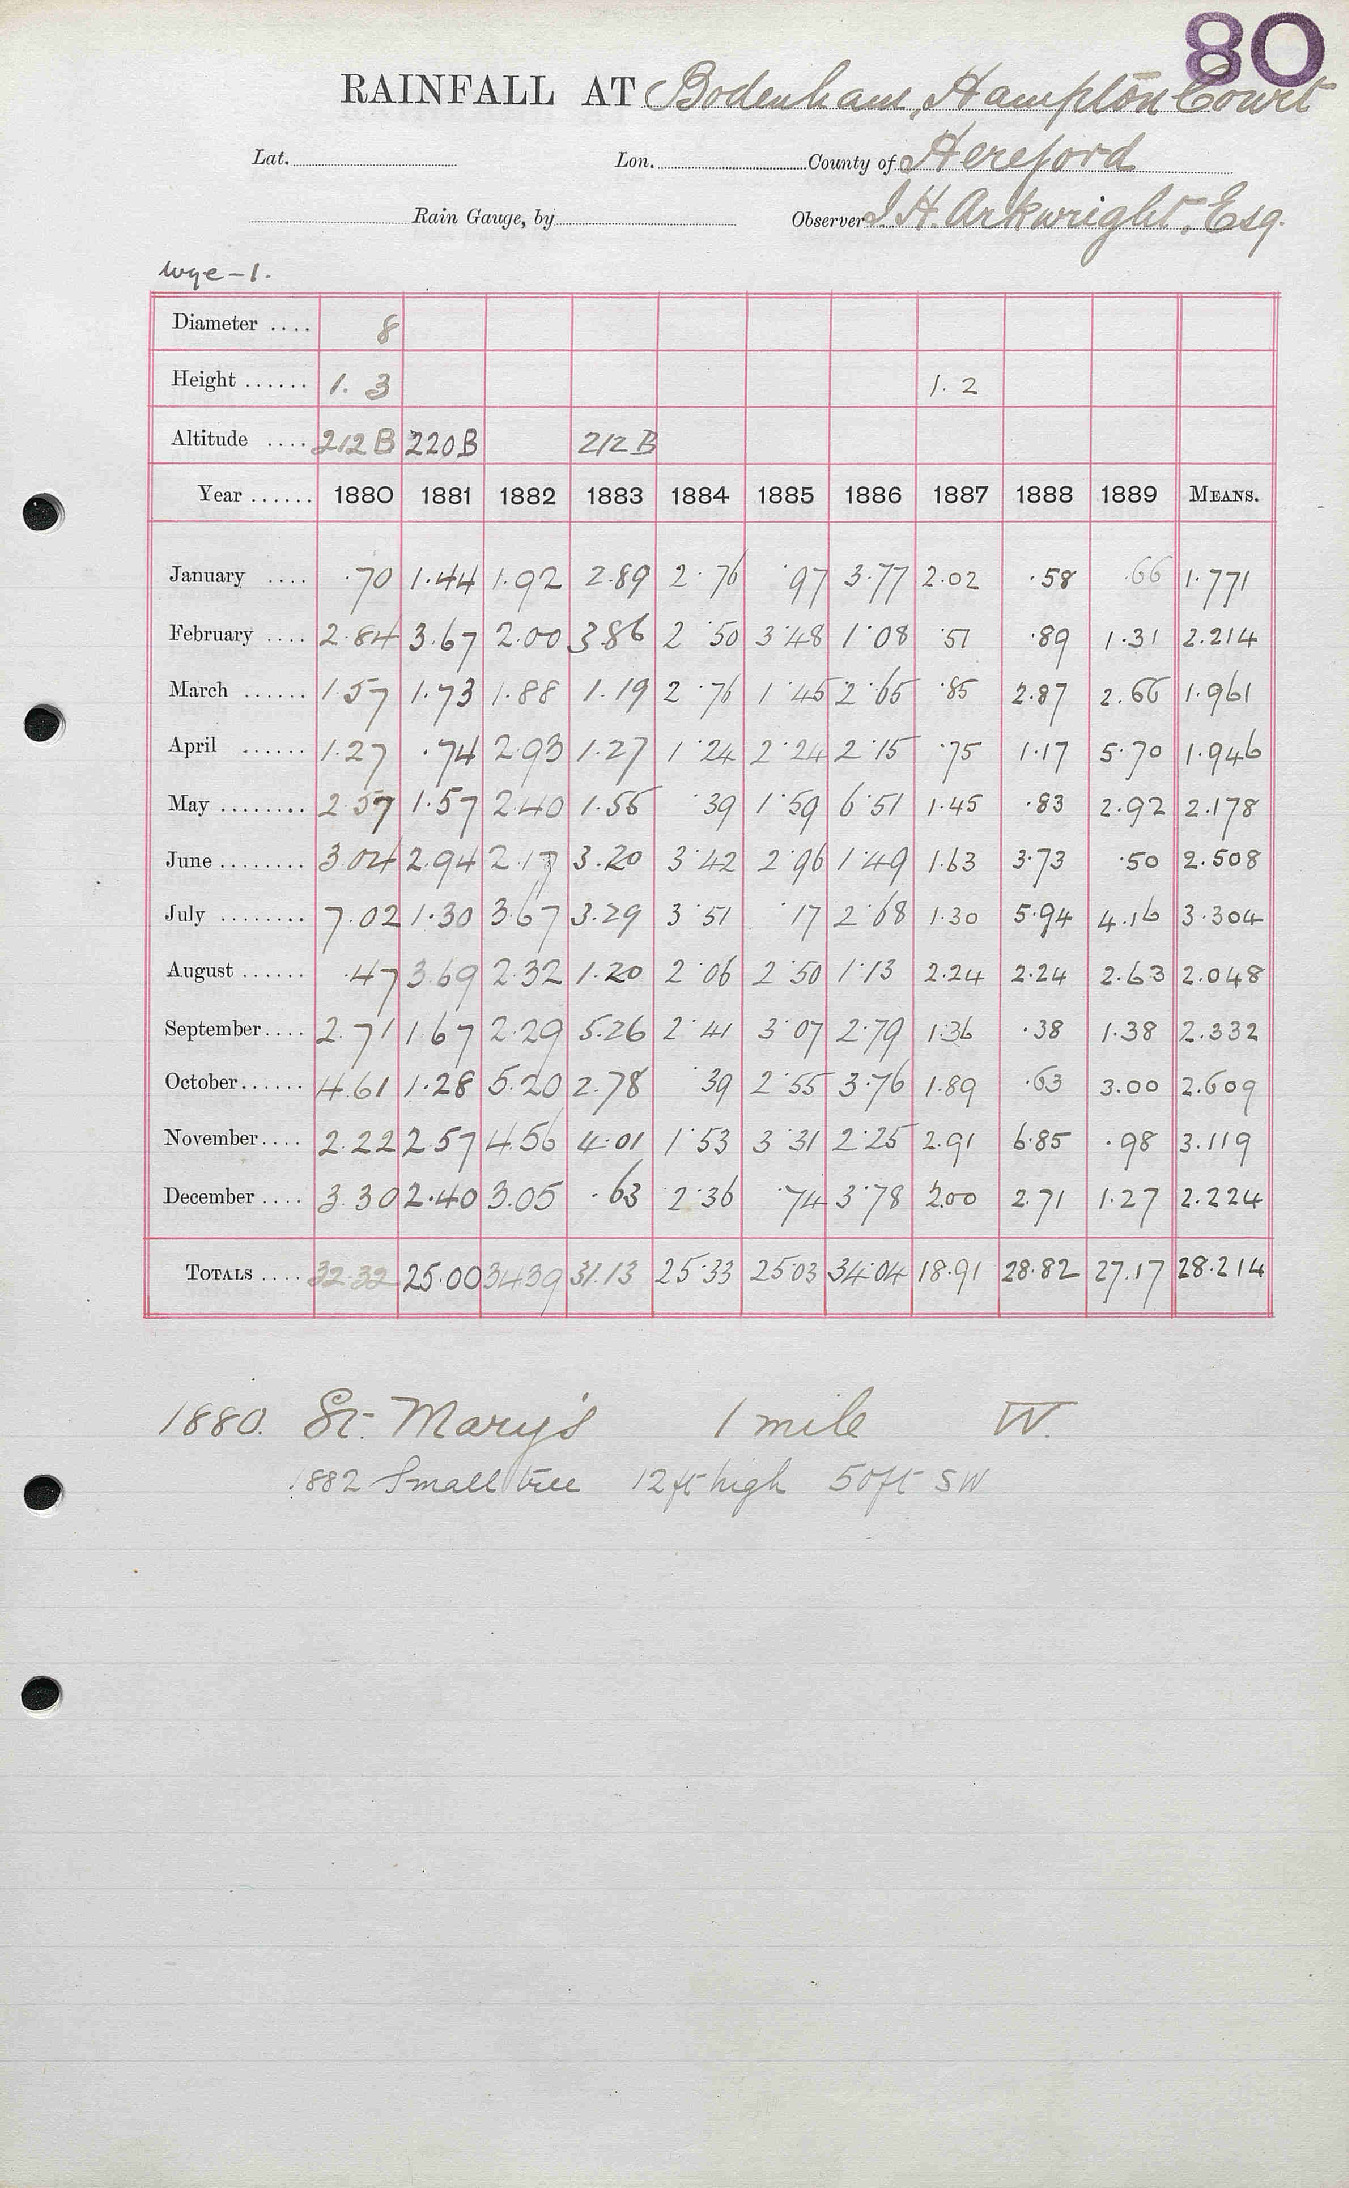 80
RAINFALL AT Bodenham, Hampton Court
Lat. Lon. County of Hereford
Rain Gauge, by Observer J. H. Arkwright, Esq.
Wye-1.
Diameter .... 8
Height ...... 1. 3 1. 2
Altitude .... 212 B 220 B 212 B
Year ...... 1880 1881 1882 1883 1884 1885 1886 1887 1888 1889 MEANS.
January .... .70 1.44 1.92 2.89 2.76 .97 3.77 2.02 .58 .66 1.771
February .... 2.84 3.67 2.00 3.86 2.50 3.48 1.08 .51 .89 1.31 2.214
March ...... 1.57 1.73 1.88 1.19 2.76 1.45 2.65 .85 2.87 2.66 1.961
April ...... 1.27 .74 2.93 1.27 1.24 2.24 2.15 .75 1.17 5.70 1.946
May ........ 2.57 1.57 2.40 1.56 .39 1.59 6.51 1.45 .83 2.92 2.178
June ........ 3.04 2.94 2.17 3.20 3.42 2.96 1.49 1.63 3.73 .50 2.508
July ........ 7.02 1.30 3.67 3.29 3.51 .17 2.68 1.30 5.94 4.16 3.304
August ...... .47 3.69 2.32 1.20 2.06 2.50 1.13 2.24 2.24 2.63 2.048
September.... 2.71 1.67 2.29 5.26 2.41 3.07 2.79 1.36 .38 1.38 2.332
October...... 4.61 1.28 5.20 2.78 .39 2.55 3.76 1.89 .63 3.00 2.609
November.... 2.22 2.57 4.56 4.01 1.53 3.31 2.25 2.91 6.85 .98 3.119
December .... 3.30 2.40 3.05 .63 2.36 .74 3.78 2.00 2.71 1.27 2.224
TOTALS .... 32.32 25.00 34.39 31.13 25.33 25.03 34.04 18.91 28.82 27.17 28.214
1880. St. Mary's 1 mile W.
1882 Small tree 12 ft high 50 ft SW